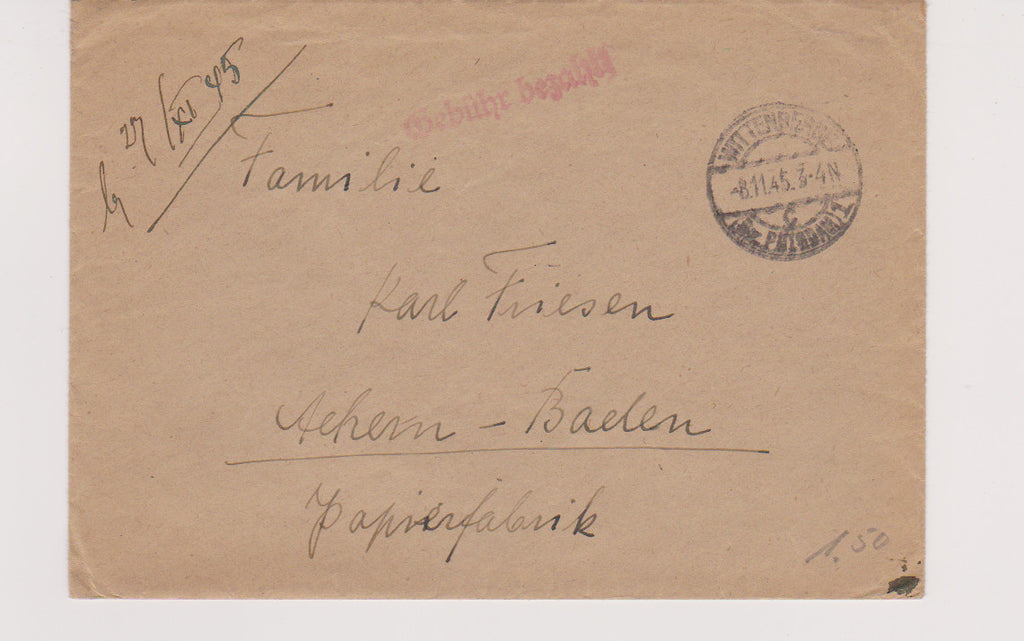 27/XI 45
Gebühr bezahlt
Familie
WITTENBERGE
-8.11.45. 3-4N
c
(Bz. POTSDAM) 1
Karl Friesen
Achern - Baden
Papierfabrik
1.50